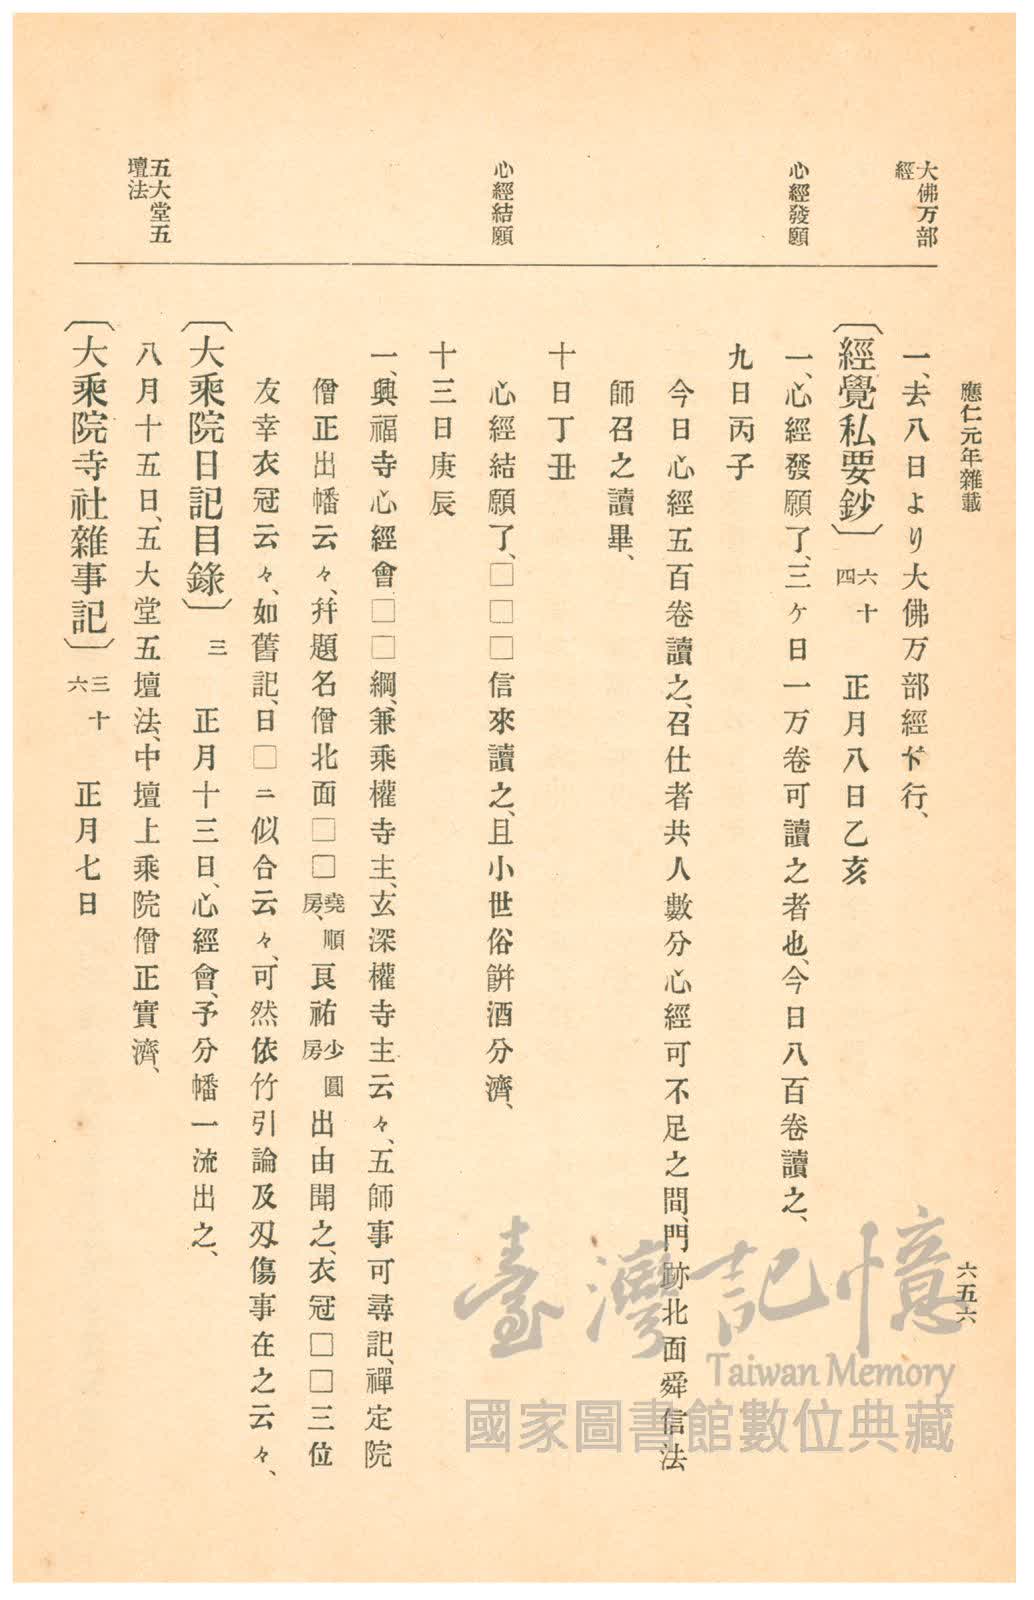 應仁元年雜載
六五六
大佛万部
經
心經發願
心經結願
五大堂五
壇法
一、去八日より大佛万部經下行、
〔經覺私要鈔〕六十四 正月八日乙亥
一、心經發願了、三ケ日一万卷可讀之者也、今日八百卷讀之、
九日丙子
今日心經五百卷讀之、召仕者共人數分心經可不足之間、門跡北面舜信法
師召之讀畢、
十日丁丑
心經結願了、□□□信來讀之、且小世俗餠酒分濟、
十三日庚辰
一、興福寺心經會□□綱、兼乘權寺主、玄深權寺主云々、五師事可尋記、禪定院
僧正出幡云々、幷題名僧北面□□堯順房、良祐少圓房出由聞之、衣冠□□三位
友幸衣冠云々、如舊記、日□ニ似合云々、可然依竹引論及刄傷事在之云々、
〔大乘院日記目錄〕三 正月十三日、心經會、予分幡一流出之、
八月十五日、五大堂五壇法、中壇上乘院僧正實濟、
〔大乘院寺社雜事記〕三十六 正月七日
臺灣記憶
Taiwan Memory
國家圖書館數位典藏